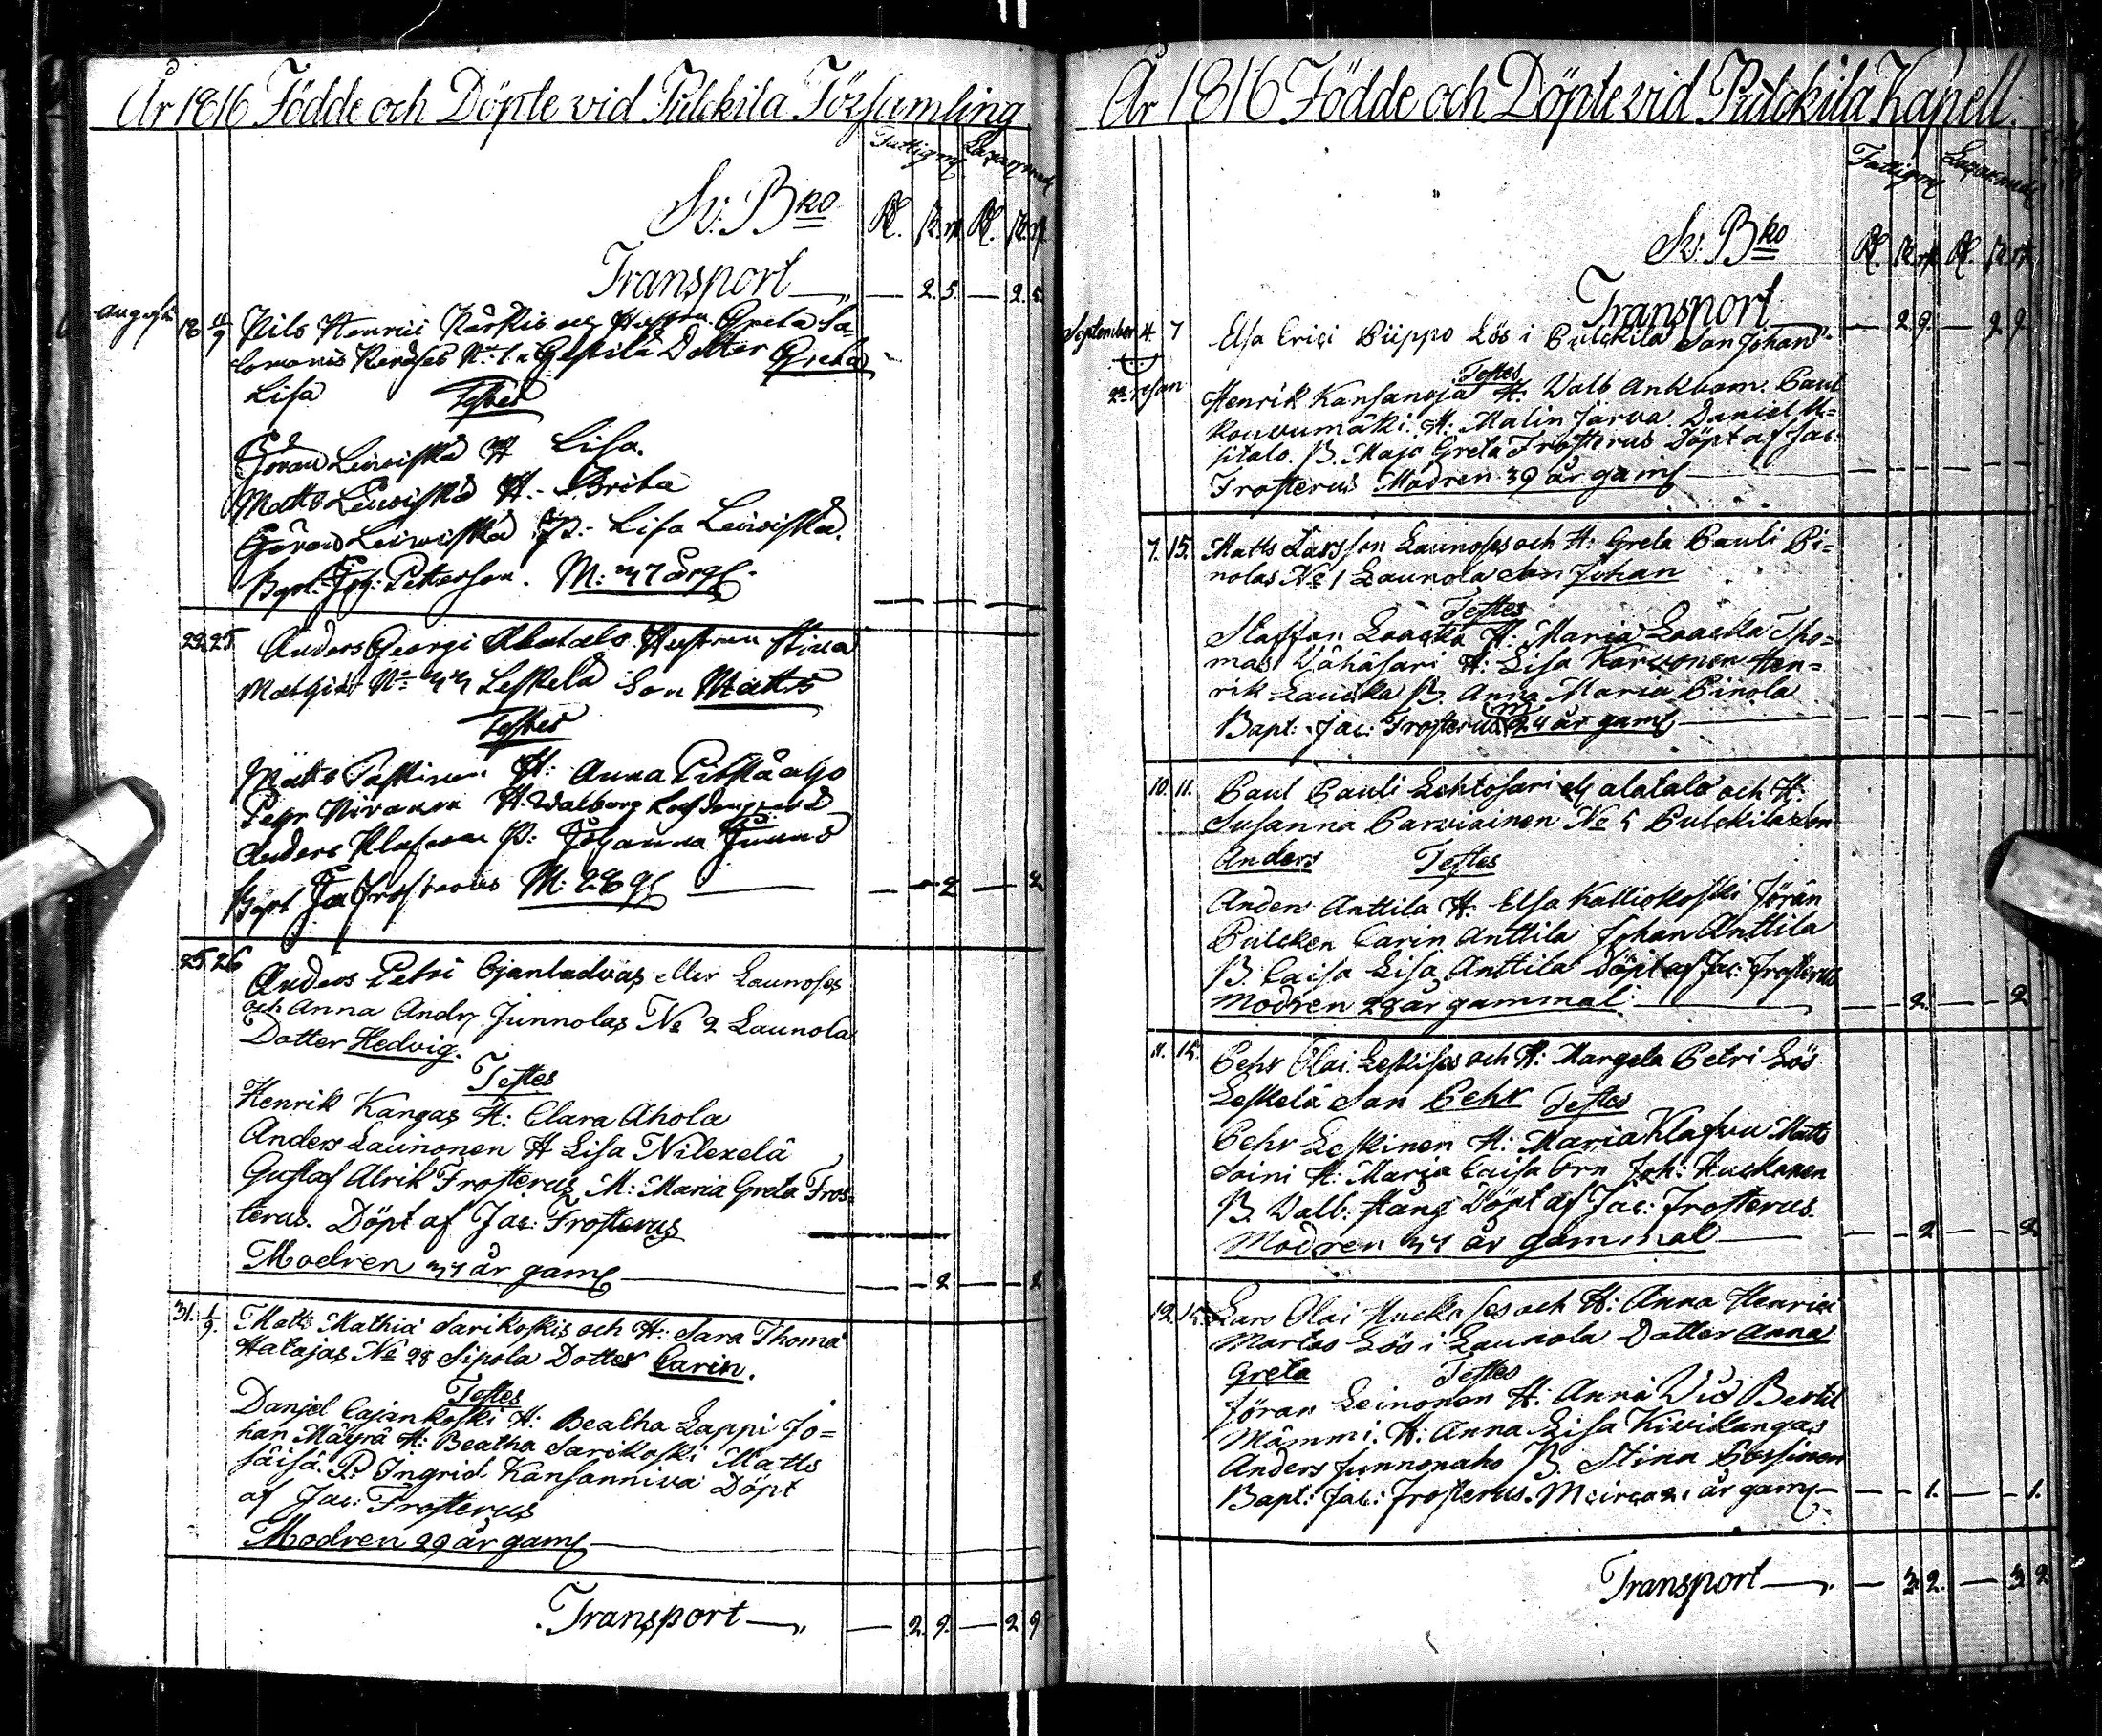 År 1816 Födde och Döpte vid Pulckila Församling
Fattigm Lazarettmed
Sv: Bko Rd. sk. rst. Rd. sk. rst.
Transport — 2. 5. — 2. 5.
Augusti 18 11/9 Nils Henrici Kärkis och Hustru Greta Sa=
lomonis No 1 Dotter Greta
Lisa Testes
Göran Leiviskä H Lisa.
Matts Leiviskä H: Brita
Göran Leiviskä P: Lisa Leiviskä.
Bapt. Petterson. M: 37 år gl.
23. 25. Anders Georgi Alatalo Hustrun Stina
No 33 Leskelä Son Matts
Testes
Matts H: Anna
Pehr Nivanen H. Walborg
Anders Klafven P: Johanna
Bapt Jac Frosterus M: 28 gl — 2 — 2
25. 26 Anders Petri eller Launoses
och Anna Andr Junnolas No 2 Launola
Dotter Hedvig.
Testes
Henrik Kangas H: Clara Ahola
Anders Launonen H Lisa Nilexelä
Gustaf Alrik Frosterus M: Maria Greta Fros=
terus. Döpt af Jac: Frosterus
Modren 37 år gaml — — 2 — 2
31. 1/9. Matts Mathiæ Sarikoskis och H: Sara Thomæ
Hatajas No 28 Sipola Dotter Carin.
Testes
Danjel Cajankoski H: Beatha Lappi Jo=
han Mäyrä H: Beatha Sarikoski Matts
Säisä. P: Ingrid Kansanniva Döpt
af Jac: Frosterus
Modren 29 år gaml
Transport — — 2. 9. — 2 9
År 1816 Födde och Döpte vid Pulckila Kapell.
Fattigm Lazarettmed
Sv: Bko Rd. sk. rst. Rd. sk. rst.
Transport — 2 9. — 2 9
September 4 7 Elsa Erici Piippo Lös i Pulckila Son Johan
Testes
Henrik Kansanoja H: Valb Ankham. Paul
Kouvumäki. H: Malin Järva. Daniel U=
sitalo. P. Maja Greta Frosterus Döpt af Jac:
Frosterus Modren 39 år gaml
7. 15. Matts Larsson Launoses och H: Greta Pauli Pi=
nolas No 1 Launola Son Johan
Testes
Staffan Laaska H: Maria Laaska Tho=
mas Vähäsari H: Lisa Karvonen Hen=
rik P. Anna Maria Pinola
Bapt: Jac: Frosterus M 24 år gaml
10. 11. Paul Pauli Lehtosari alatalo och H:
Susanna Parviainen No 5 Pulckila Son
Anders Testes
Anders Anttila H: Elsa Kalliokoski Jöran
Pulcken Carin Anttila Johan Anttila
P. Caisa Lisa Anttila Döpt af Jac: Frosterus
Modren 29 år gammal — — 2. — 2
11. 15. Pehr Olai Leskises och H: Margeta Petri Lös
Leskelä Son Pehr Testes
Pehr Leskinen H: Maria Klafvu Matts
Soini H: Maria Caisa Orn Joh: Huckanen
P. Valb: Stång Döpt af Jac: Frosterus.
Modren 37 år gammal — — 2 — 2
12. 15. Lars Olai Huckases och H: Anna Henrici
Martas Lös i Launola Dotter Anna
Greta Testes
Jöran Leinonen H: Anna Vid Bertil
Mämmi. H: Anna Lisa Kivikangas
Anders Junnonaho P. Stina
Bapt: Jac: Frosterus. M circa 21 år gaml — — 1. — 1.
Transport — — 3. 2. — 3 2